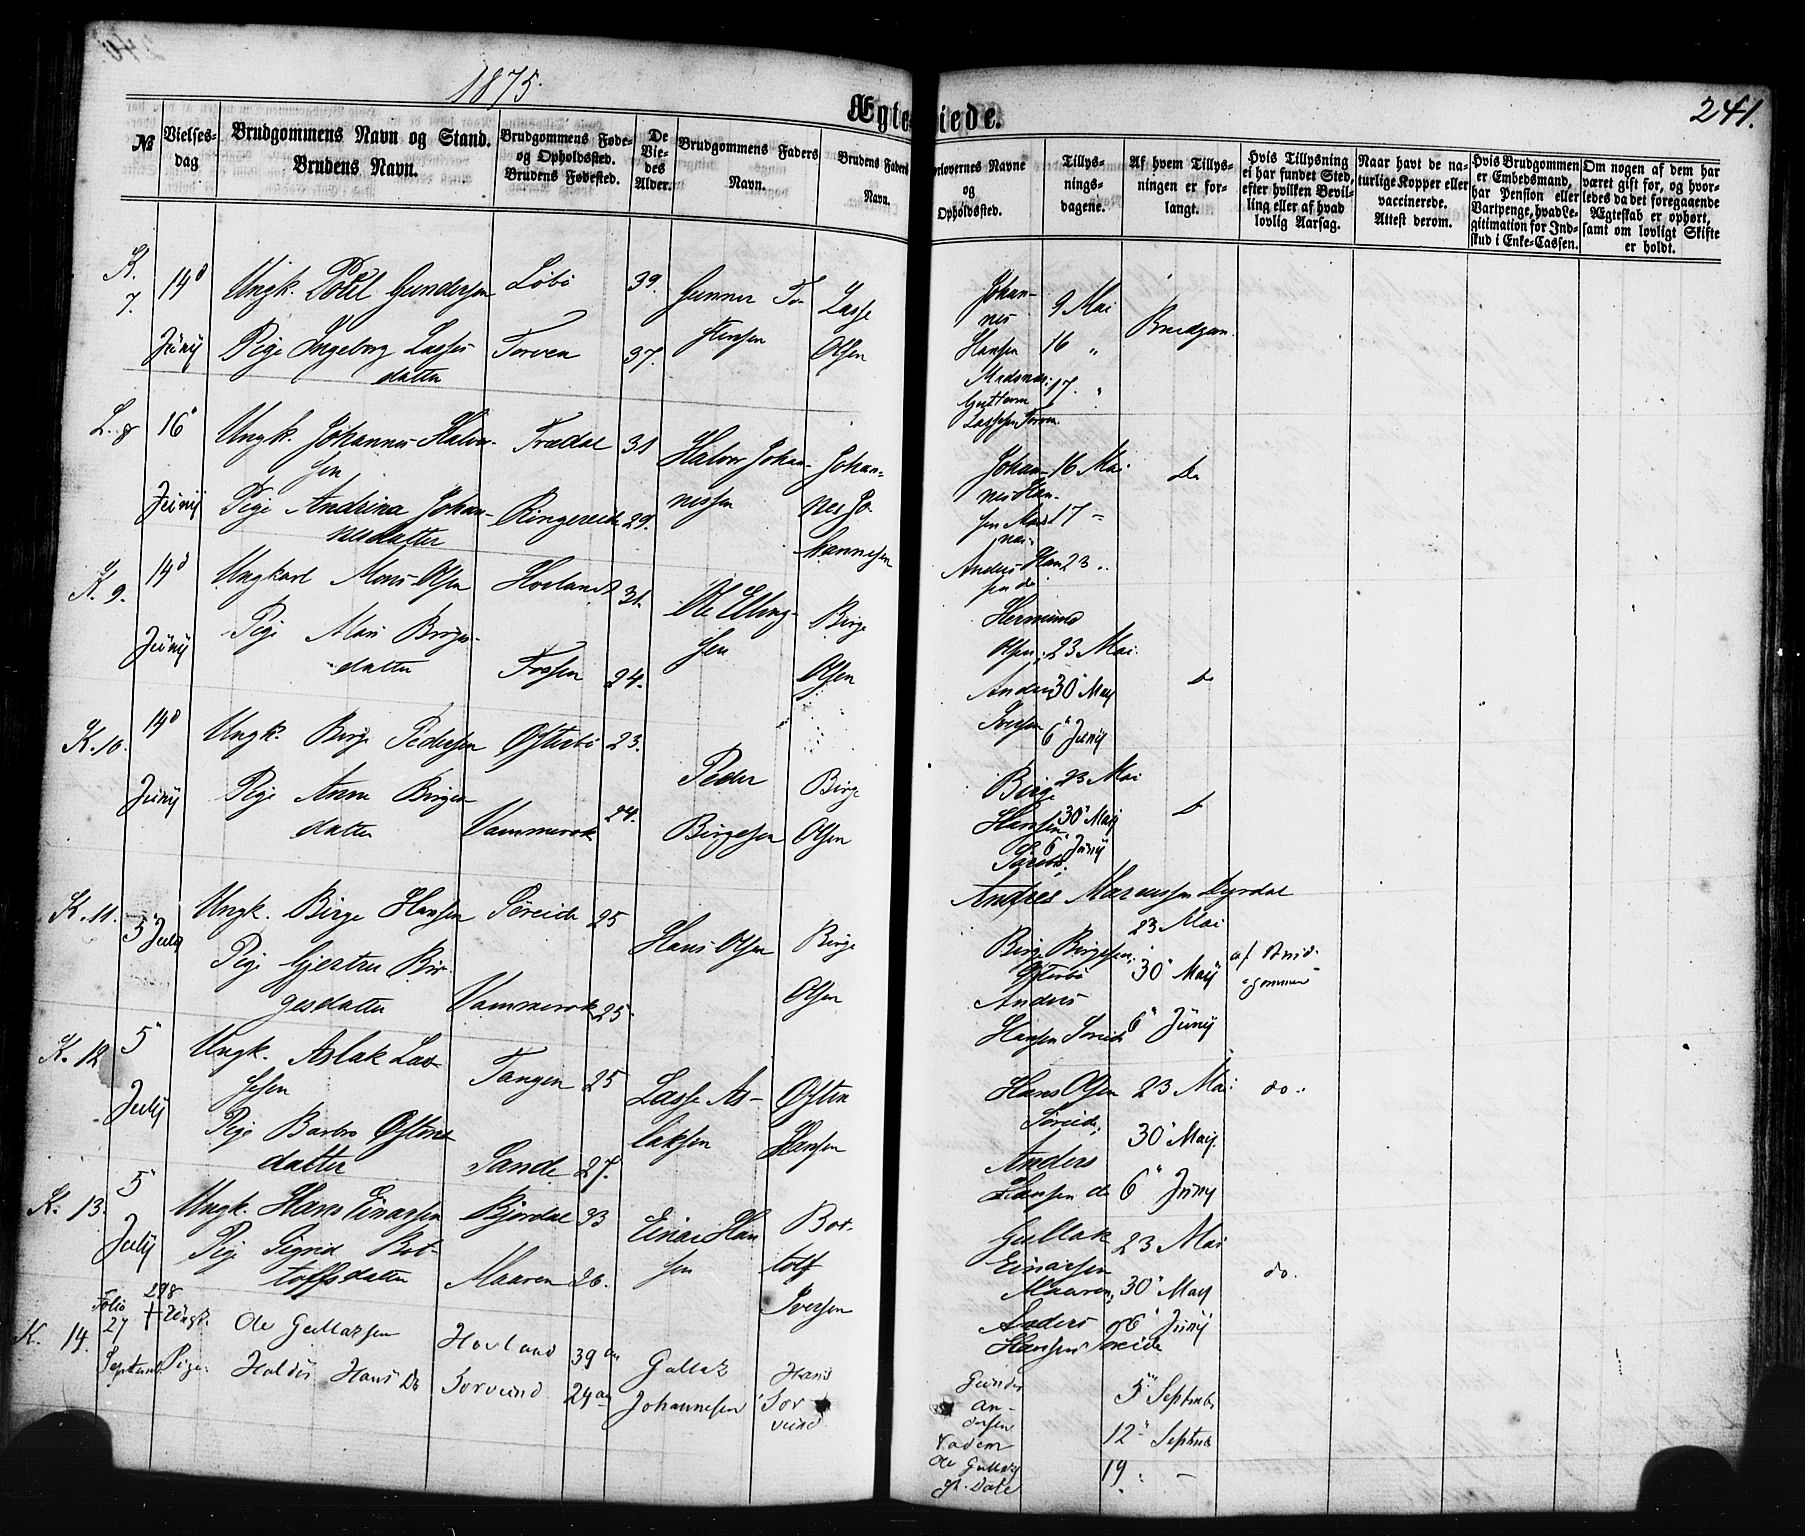 1875.
Ægteviede.
241.
№
Vielses-dag
Brudgommens Navn og Stand.
Brudens Navn.
Brudgommens Føde-
og Opholdssted.
Brudens Fødested.
De
Vie-
des
Alder.
Brudgommens Faders
Navn.
Brudens Faders
Navn.
orlovernes Navne
og
Opholdssted.
Tillys-
nings-
dagene.
Af hvem Tillys-
ningen er for-
langt.
Hvis Tillysning
ei har fundet Sted,
efter hvilken Bevil-
ling eller af hvad
lovlig Aarsag.
Naar havt de na-
turlige Kopper eller
vaccinerede.
Attest derom.
Hvis Brudgommen
er Embedsmand,
har Pension eller
Vartpenge, hvad Le-
gitimation for Ind-
skud i Enke-Cassen.
Om nogen af dem har
været gift før, og hvor-
ledes da det foregaaende
Ægteskab er ophørt,
samt om lovligt Skifte
er holdt.
K. 7. 14d Juny
Ungk. Botel Gundersen Løbø 39.
Pige Ingeborg Lasses
datter Torven 37.
Gunner To
stensen
Lasse
Olsen
Johan-
nes
Hansen
Gutterm
Lassesen Torven
9 Mai
16 "
17. "
Brudgom.
L. 8 16" Juny
Ungk. Johannes Halvor-
sen Trædal 31
Pige Andrina Johan-
nesdatter Ringereide 29.
Halvor Johan-
nessen
Johan-
nes Jo
hannesen
Johan-
nes Han-
sen
Anders Han
sen do
16 Mai
17 -
23 "
do
K. 9. 14d Juny
Ungkarl Mons Olsen Hovland 31.
Pige Mari Birges-
datter Fossen 24.
Ole Elling-
sen
Birge
Olsen
Hermund
Olsen
Anders
Iversen
23 Mai.
30" May
6" Juny
do
K. 10. 14d Juny
Ungk. Birge Pedersen Østerbø 23.
Pige Anna Birges-
datter Vammerok 24.
Peder
Birgesen
Birge
Olsen
Birge
Hansen
Søreide
Andres Marcussen Dyrdal
23 Mai
30" May
6" Juny
do
K. 11. 5" July
Ungk. Birge Hansen Søreide 25
Pige Gjertru Bir-
gesdatter Vammerok 25.
Hans Olsen
Birge
Olsen
Birge Birgesen
Østerbø
Anders
Hansen Søreide
23 Mai
30" May
6" Juny
af Brud-
gommen
K. 12 5" July
Ungk. Aslak Las-
sesen Tangen 25
Pige Barbro Østens
datter Sande 27.
Lasse As-
laksen
Østen
Hansen
Hans Olsen
Søreide,
Anders
Hansen do
23 Mai
30" May.
6" Juny
do.
K. 13. 5" July
Ungk. Hans Einarsen Bjordal 33
Pige Sigrid Bot-
tolfsdatter Maaren 26.
Einar Han
sen
Bot-
tolf
Iversen
Gullak
Einarsen
Maaren,
Anders
Hansen Søreide
23 Mai
30" May
6" Juny
do.
K. 14. Folio 298
27 Septemb
Ungk. Ole Gullaksen Hovland 39 aar
Pige. Haldis Hans Dr Torvund 24 aar
Gullak
Johannesen
Hans
Tor
vund
Gunder
An-
dersen
Vadem
Ole Gullak
5" Septembr
12" Septembr
19. -